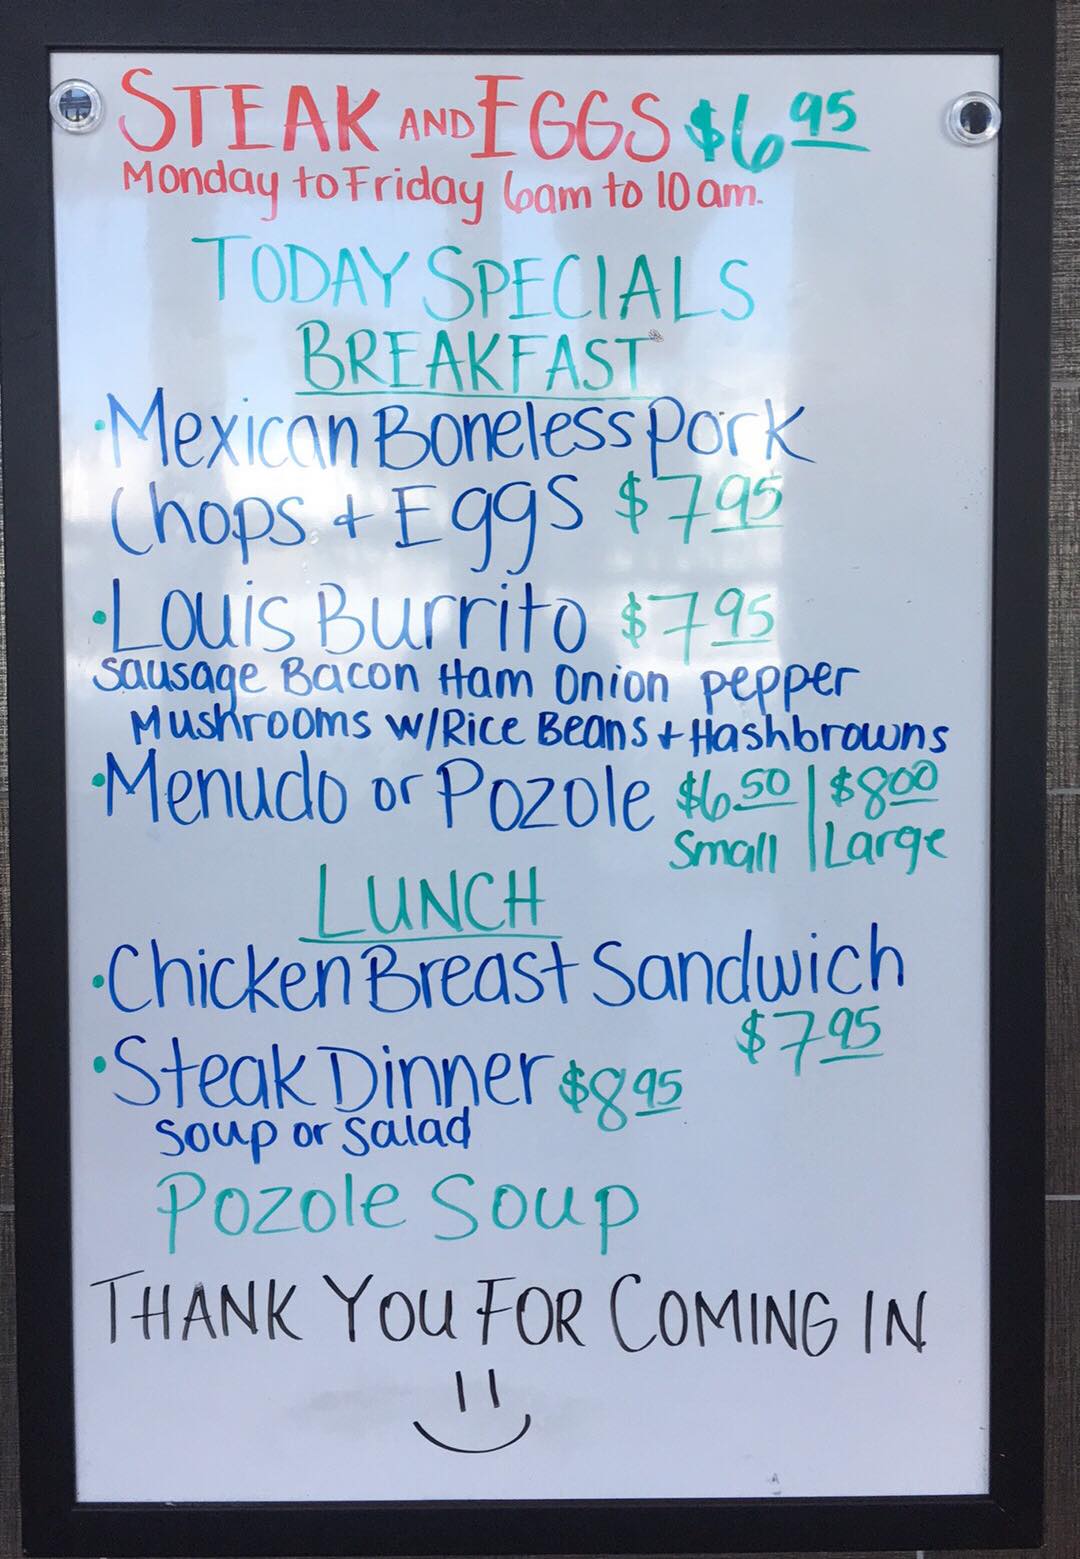 STEAK AND EGGS $6.95
Monday to Friday 6am to 10am.
TODAY SPECIALS
BREAKFAST
·Mexican Boneless Pork
Chops + Eggs $7.95
·Louis Burrito $7.95
Sausage Bacon Ham Onion pepper
Mushrooms w/Rice Beans + Hashbrowns
·Menudo or Pozole $6.50 | $8.00
Small | Large
LUNCH
·Chicken Breast Sandwich
$7.95
·Steak Dinner $8.95
Soup or Salad
Pozole Soup
THANK YOU FOR COMING IN